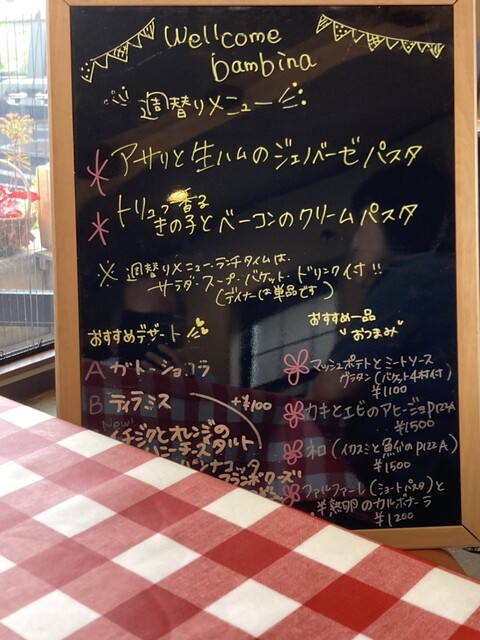 Wellcome
bambina
週替りメニュー
* アサリと生ハムのジェノベーゼパスタ
* トリュフ香る
きの子とベーコンのクリームパスタ
※ 週替りメニュー・ランチタイムは、
サラダ・スープ・バケット・ドリンク付!!
(ディナーは単品です)
おすすめデザート
A ガトーショコラ
B ティラミス +¥100
New!
イチジクとオレンジの
ハニーチーズタルト
パンナコッタ
フランボワーズ
おすすめ一品
"おつまみ"
マッシュポテトとミートソース
グラタン(バケット4枚付)
¥1100
カキとエビのアヒージョPIZZA
¥1500
ネロ(イカスミと魚介のPIZZA)
¥1500
ファルファーレ(ショートパスタ)と
半熟卵のカルボナーラ
¥1200